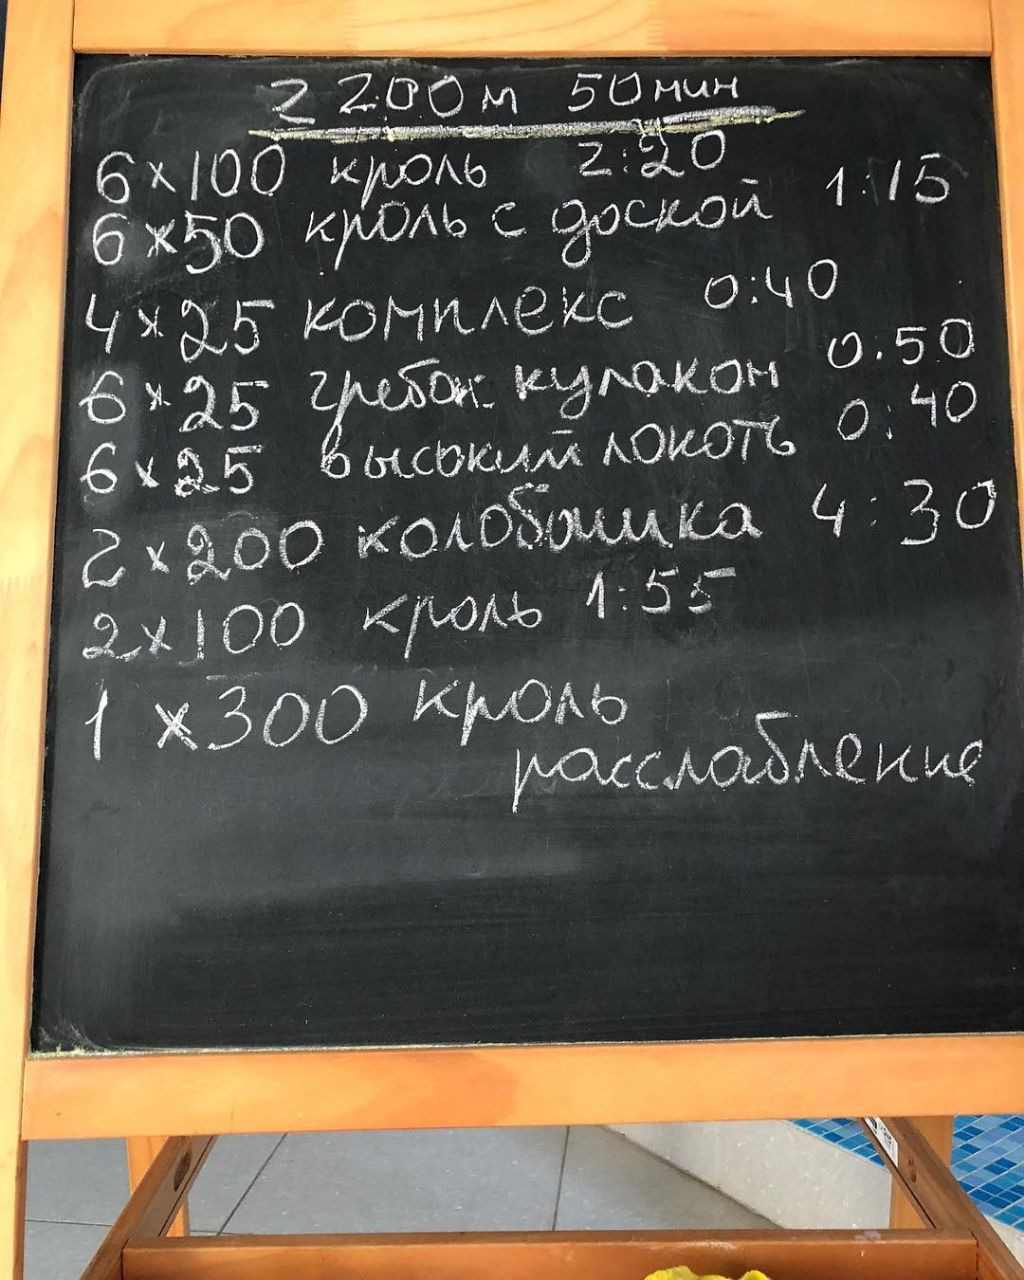 2200м 50мин
6×100 кроль 2:20
6×50 кроль с доской 1:15
4×25 комплекс 0:40
6×25 гребок кулаком 0:50
6×25 высокий локоть 0:40
2×200 колобашка 4:30
2×100 кроль 1:55
1×300 кроль
расслабление